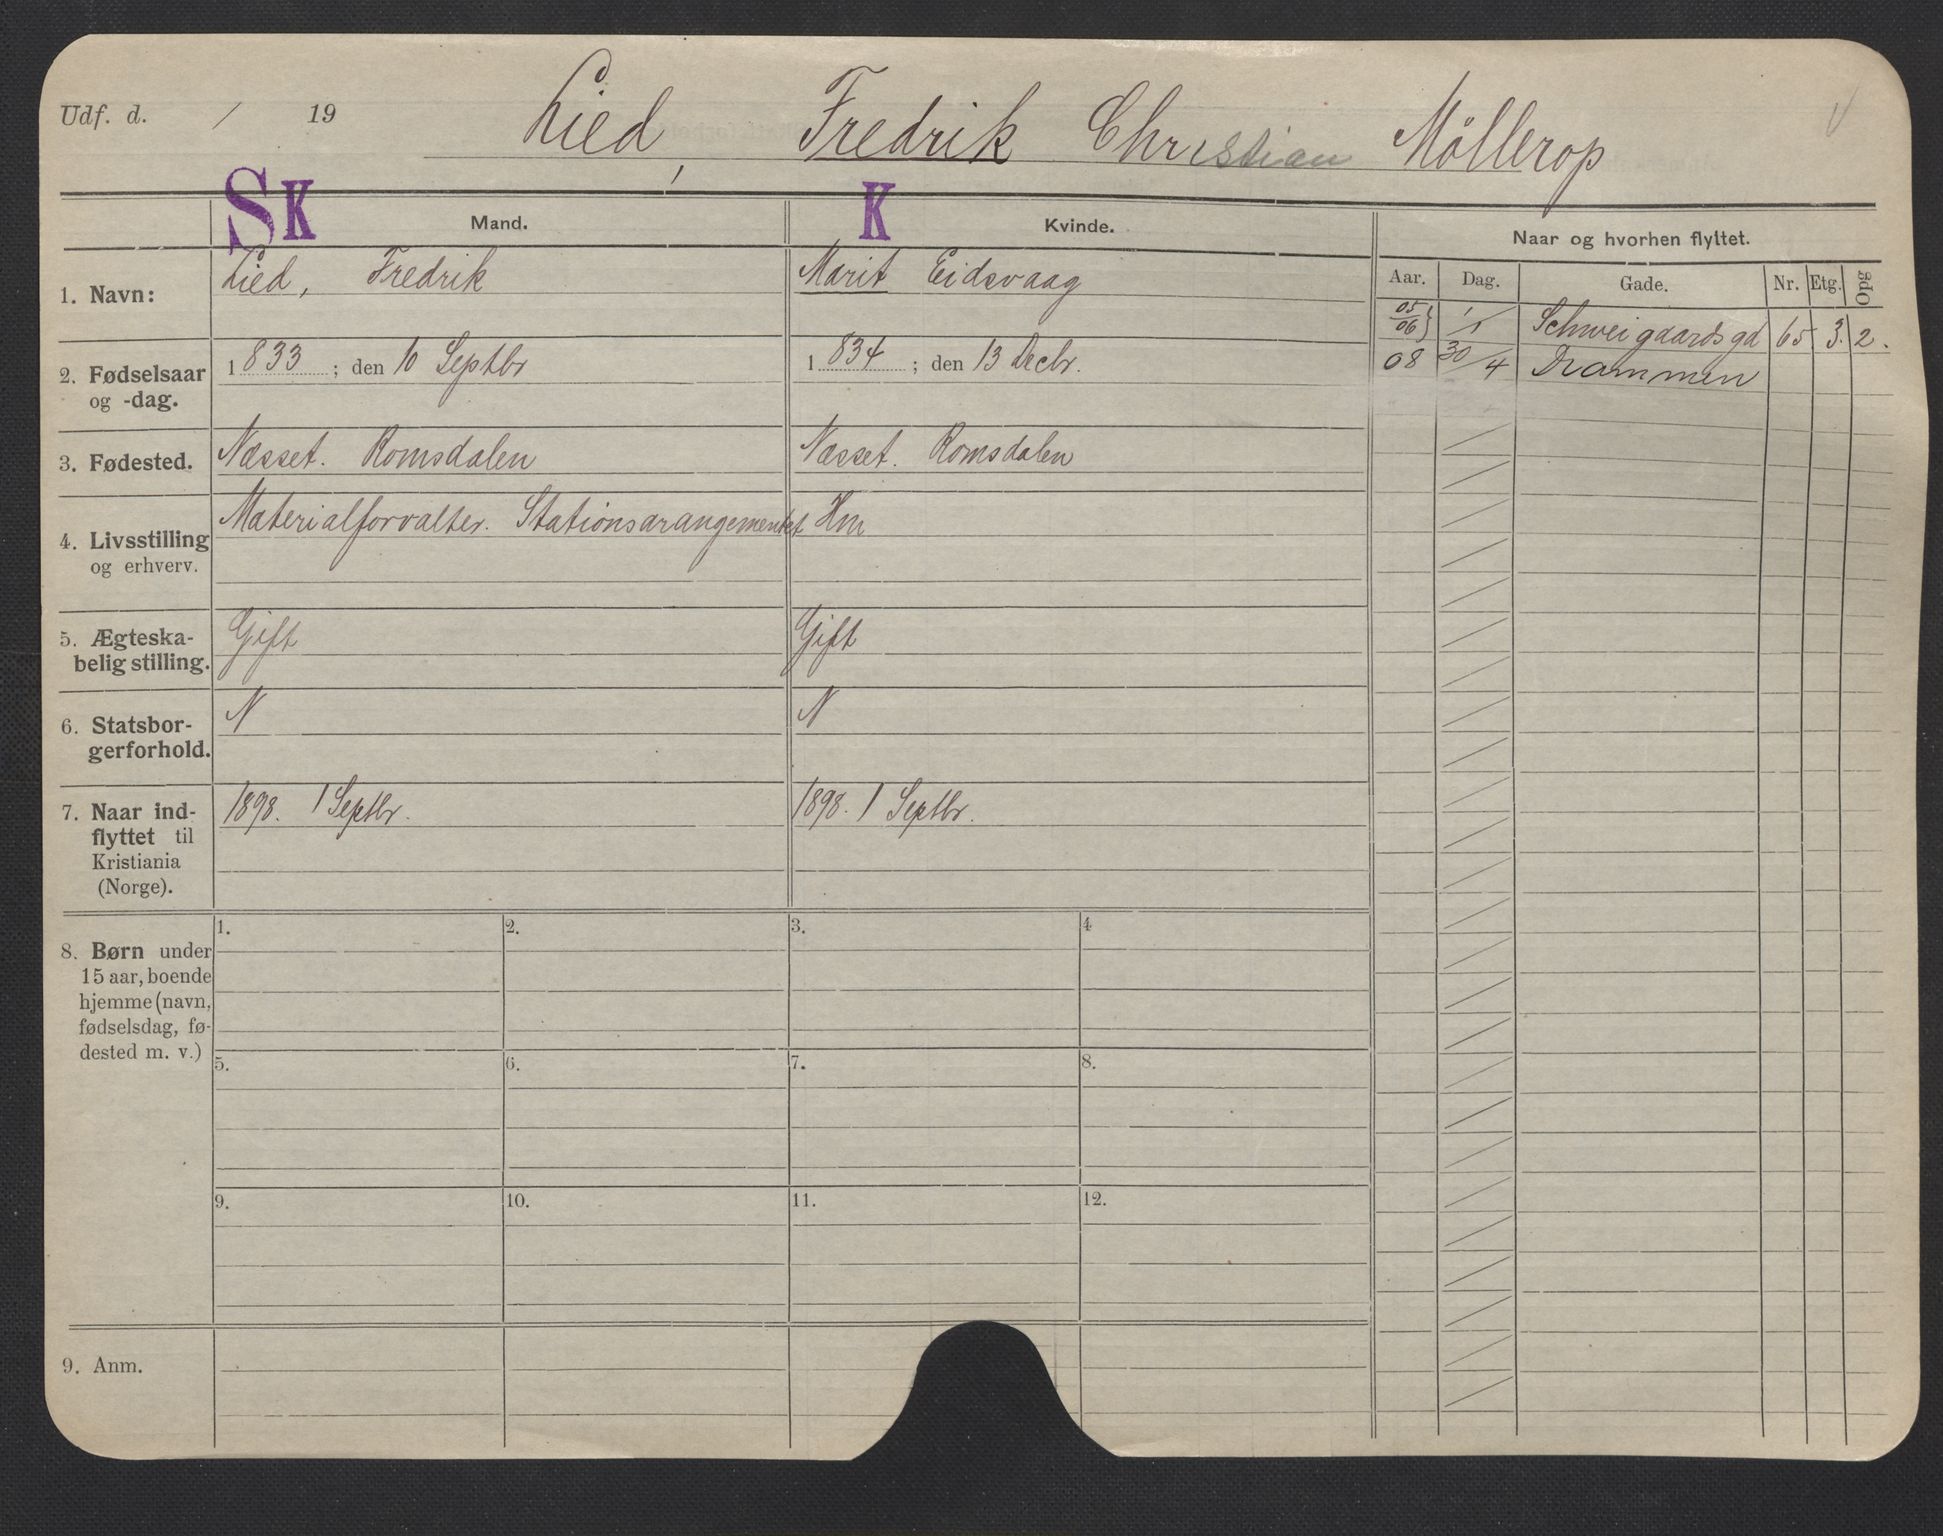 Udf. d. / 19 Lied, Fredrik Christian Möllerop
SK K
Mand. Kvinde. Naar og hvorhen flyttet.
Aar. Dag. Gade. Nr. Etg. Opg
1. Navn: Lied, Fredrik Marit Eidsvaag
05/06} 1/1 Schweigaardsgd 65 3. 2.
08 30/4 Drammen
2. Fødselsaar og -dag. 1833; den 10 Septbr 1834; den 13 Decbr.
3. Fødested. Næsset. Romsdalen Næsset. Romsdalen
4. Livsstilling og erhverv. Materialforvalter. Stationsarangementet Hm
5. Ægteska-
belig stilling. Gift Gift
6. Statsbor-
gerforhold. N N
7. Naar ind-
flyttet til
Kristiania
(Norge). 1898. 1 Septbr. 1898. 1 Septbr.
8. Børn under
15 aar, boende
hjemme (navn,
fødselsdag, fø-
dested m. v.)
1. 2. 3. 4
5. 6. 7. 8.
9. 10. 11. 12.
9. Anm.